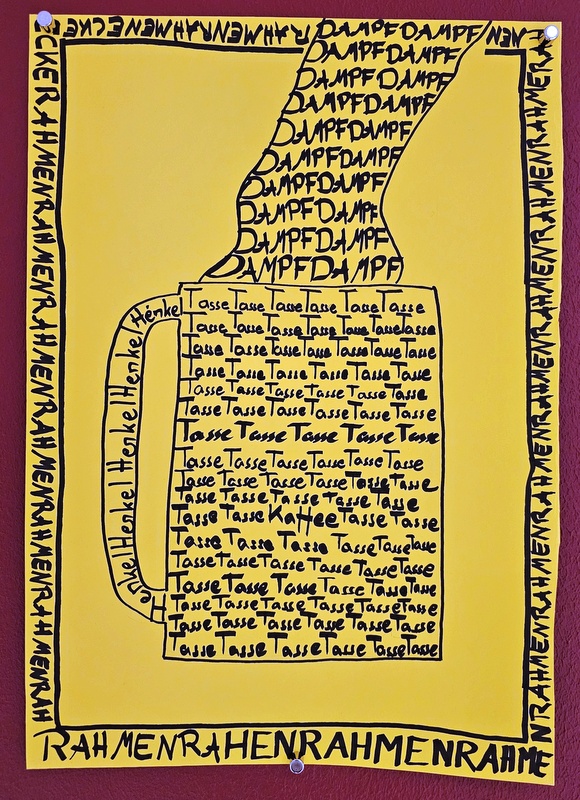 RAHMENRAHMENECKE
NEN
ECKERAHMENRAHMENRAHMENRAHMENRAHMENRAHMENRAH
DAMPFDAMPF
DAMPFDAMPF
DAMPFDAMPF
DAMPFDAMPF
DAMPFDAMPF
DAMPFDAMPF
DAMPFDAMPF
DAMPFDAMPF
DAMPFDAMPF
DAMPFDAMPF
Henkel Henkel Henkel Henkel Henkel
Tasse Tasse Tasse Tasse Tasse Tasse
Tasse Tasse Tasse Tasse Tasse Tasse
Tasse Tasse Tasse Tasse Tasse Tasse
Tasse Tasse Tasse Tasse Tasse Tasse
Tasse Tasse Tasse Tasse Tasse Tasse
Tasse Tasse Tasse Tasse Tasse Tasse
Tasse Tasse Tasse Tasse Tasse
Tasse Tasse Tasse Tasse Tasse Tasse
Tasse Tasse Tasse Tasse Tasse Tasse
Tasse Tasse Tasse Tasse Tasse
Tasse Tasse Kaffee Tasse Tasse
Tasse Tasse Tasse Tasse Tasse Tasse
Tasse Tasse Tasse Tasse Tasse Tasse
Tasse Tasse Tasse Tasse Tasse Tasse
Tasse Tasse Tasse Tasse Tasse Tasse
Tasse Tasse Tasse Tasse Tasse Tasse
Tasse Tasse Tasse Tasse Tasse Tasse
NRAHMENRAHMENRAHMENRAHMENRAHMENRAHMENRAHMERAH
RAHMENRAHENRAHMENRAHME